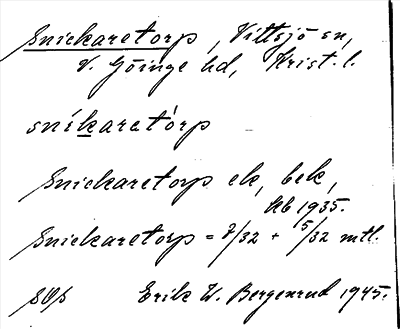 Snickaretorp, Vittsjö sn,
V. Göinge hd, Krist. l.
sníkaretòrp
Snickaretorp ek, bek,
Hb 1935.
Snickaretorp = 7/32 + 5/32 mtl.
Erik W. Bergenrud 1945.